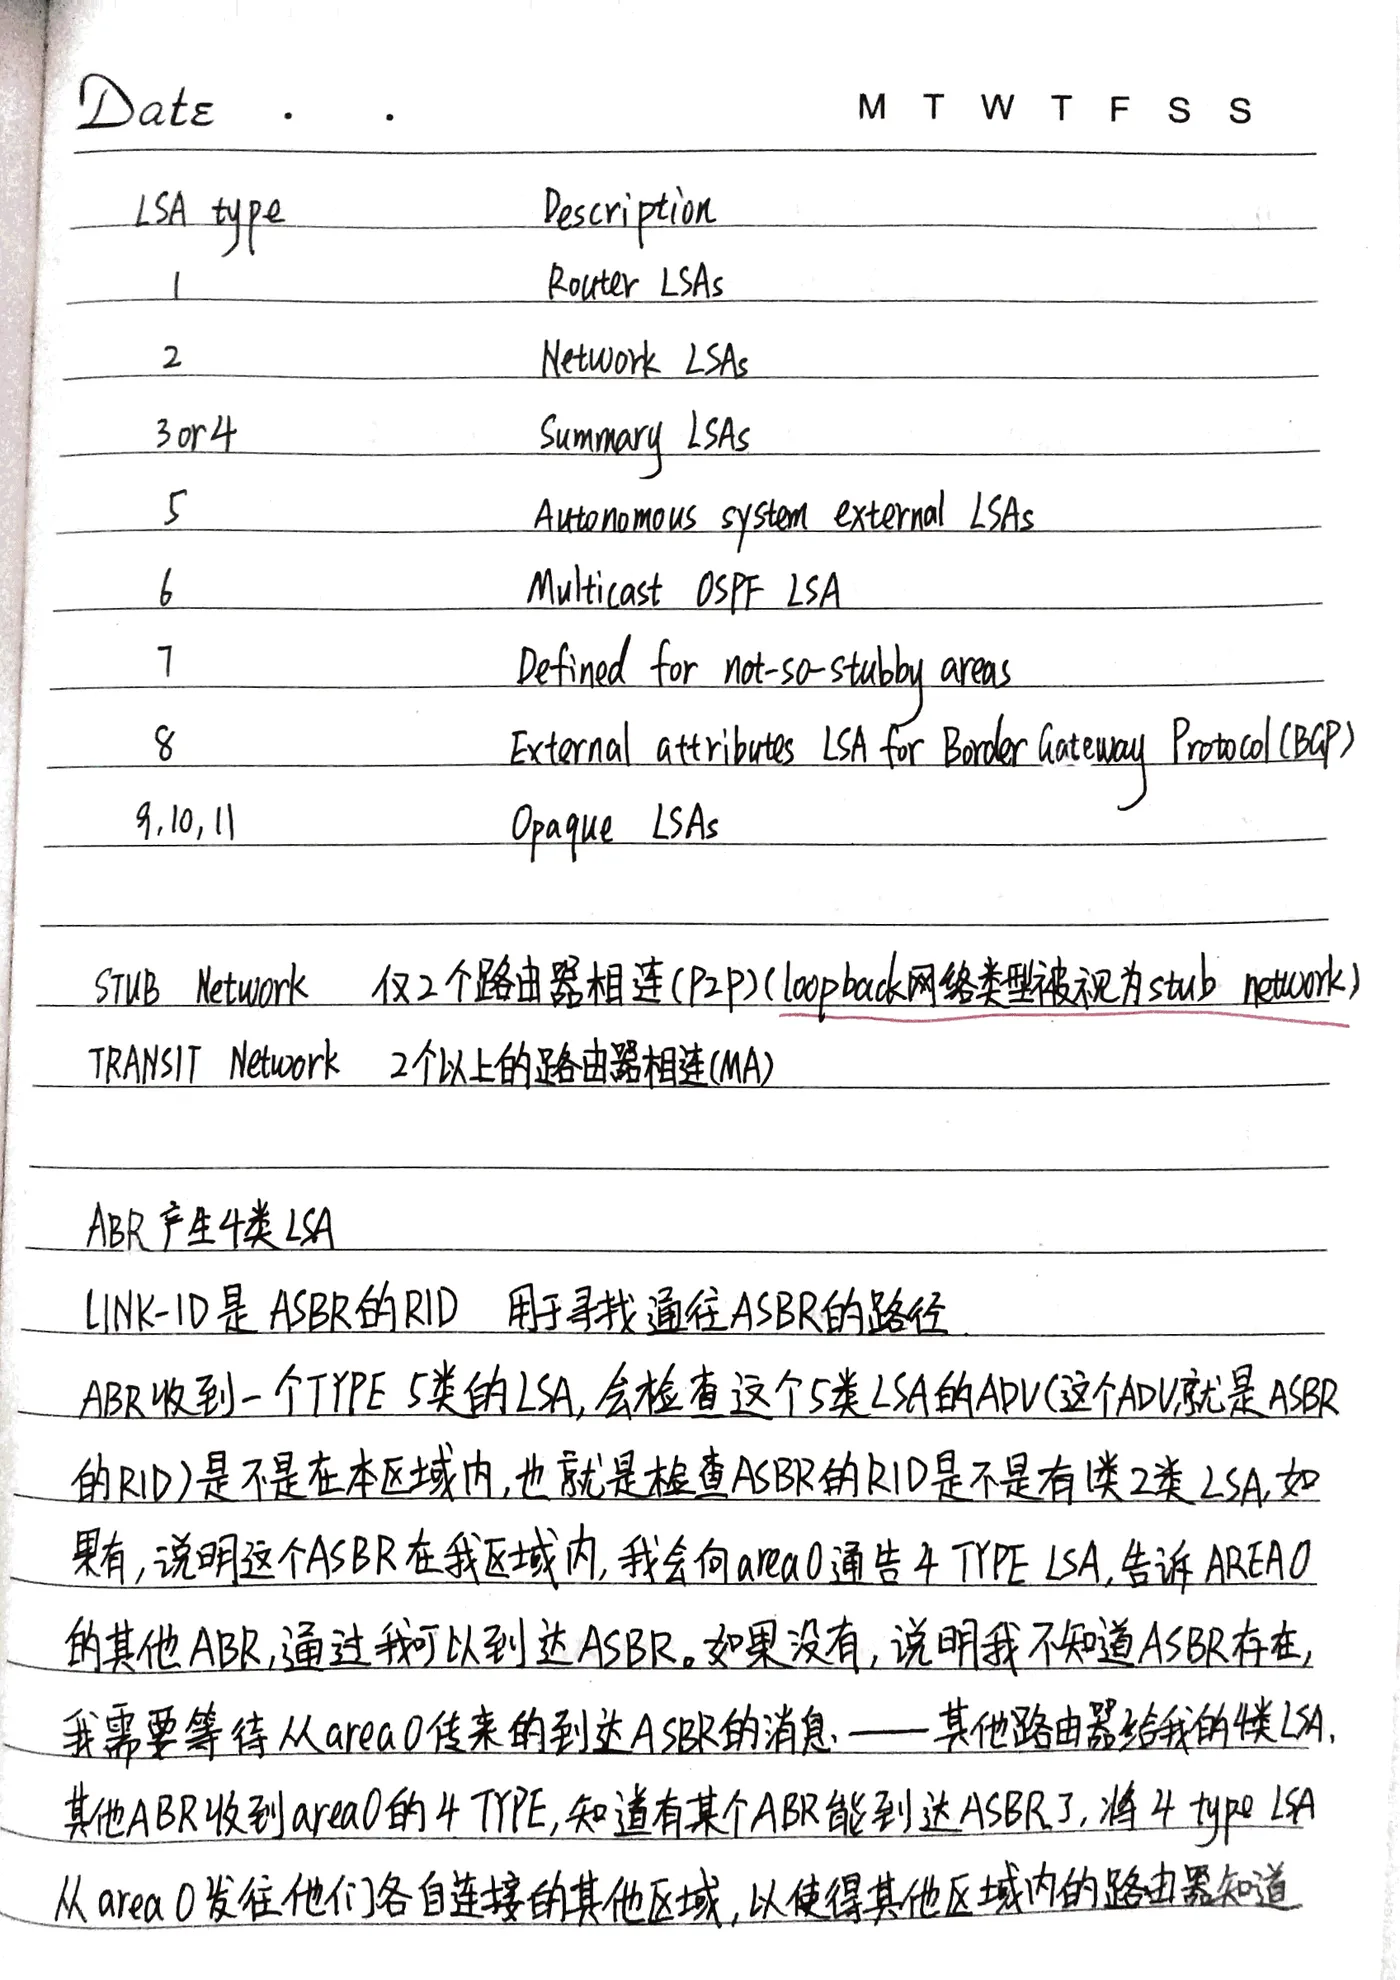 Date . . M T W T F S S
LSA type Description
1 Router LSAs
2 Network LSAs
3 or 4 Summary LSAs
5 Autonomous system external LSAs
6 Multicast OSPF LSA
7 Defined for not-so-stubby areas
8 External attributes LSA for Border Gateway Protocol(BGP)
9,10,11 Opaque LSAs
STUB Network 仅2个路由器相连(P2P)(loopback网络类型被视为stub network)
TRANSIT Network 2个以上的路由器相连(MA)
ABR产生4类LSA
LINK-ID是ASBR的RID 用于寻找通往ASBR的路径.
ABR收到一个TYPE 5类的LSA,会检查这个5类LSA的ADV(这个ADV就是ASBR
的RID)是不是在本区域内,也就是检查ASBR的RID是不是有1类2类LSA,如
果有,说明这个ASBR在我区域内,我会向area0通告4 TYPE LSA,告诉AREA0
的其他ABR,通过我可以到达ASBR。如果没有,说明我不知道ASBR存在,
我需要等待从area0传来的到达ASBR的消息.——其他路由器给我的4类LSA.
其他ABR收到area0的4 TYPE,知道有某个ABR能到达ASBR了,将4 type LSA
从area0发往他们各自连接的其他区域,以使得其他区域内的路由器知道